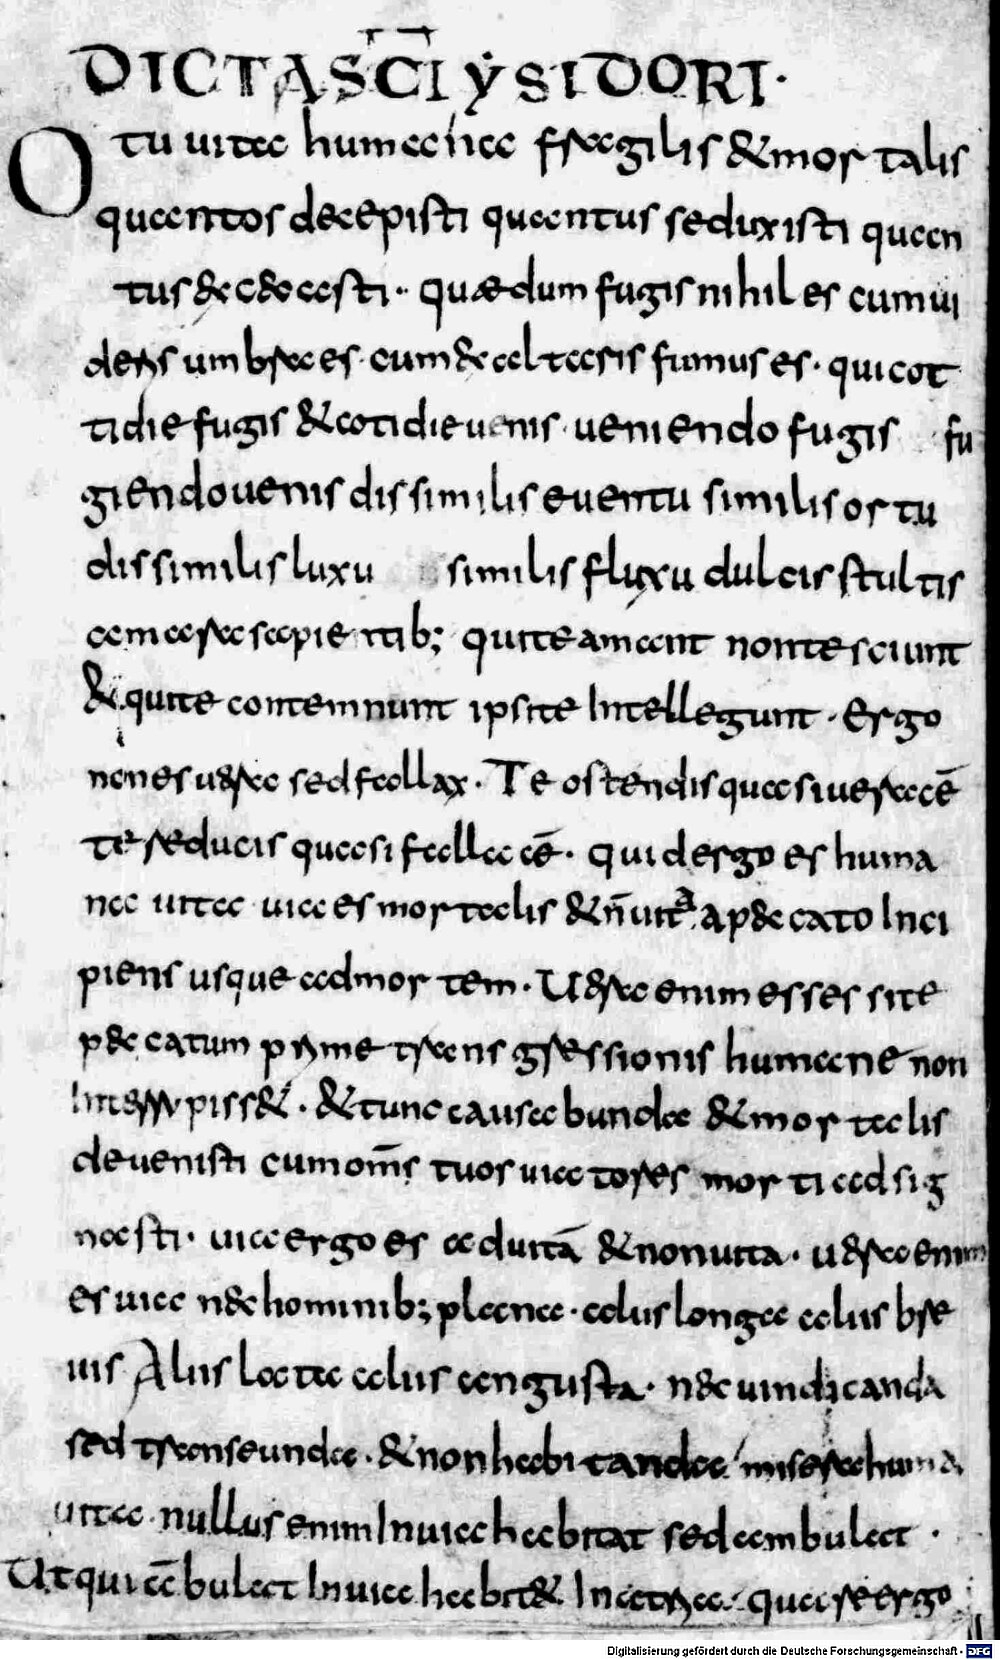 DICTA SC̄I YSIDORI·
O tu uita humana fragilis & mortalis
quantos decepisti quantus seduxisti quan
tus & c& casti·· Quæ dum fugis nihil es cum ui
dens umbra es· cum & altaris fumus es· qui cot
tidie fugis & cotidie uenis· ueniendo fugis fu
giendo uenis dissimilis euentu similis ortu
dissimilis luxu similis fluxu dulcis stultis
amara sapientib; qui te amant non te sciunt
& qui te contemnunt ipsi te Intellegunt · Ergo
non es u&ra sed fallax · Te ostendis qua si uera cē
te reducis quasi falla cē · quid ergo es huma
na uita uia es mortalis & n̄ uita a p& cato Inci
piens usque ad mortem · U&ra enim esses si te
p& catum prime transgressionis humane non
Int&rrupiss& · & tunc causabunda & mortalis
deuenisti cum om̄s tuos uiatores morti adsig
nasti· uia ergo es ad uitā & non uita· u&ra enim
es uia n& hominib; plana· alus longa alus bre
uis Alus lata alus angusta· n& uindicanda
sed transeunda· & non habitanda misera huma
uita· nullus enim In uia habitat sed ambulat ·
Ut qui ābulat In uia habit& In catria · quare ergo
Digitalisierung gefördert durch die Deutsche Forschungsgemeinschaft - DFG